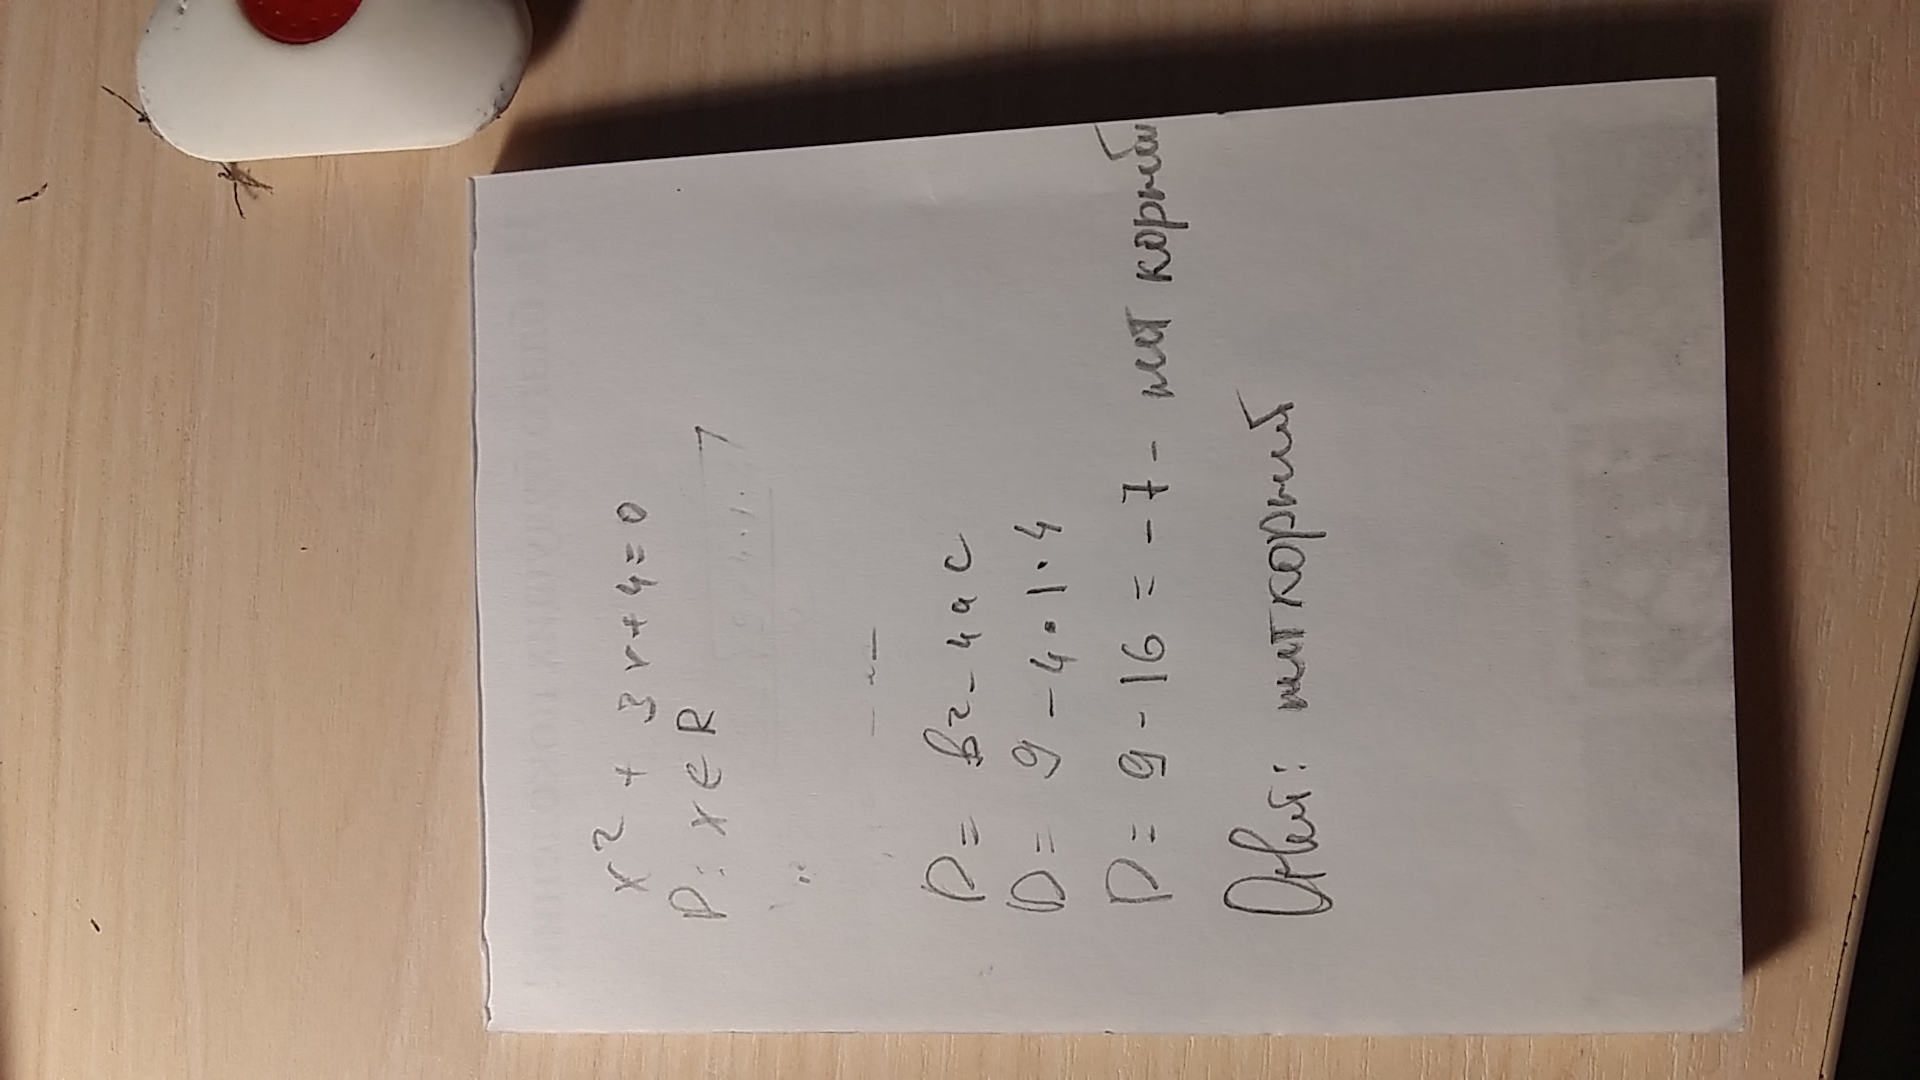 x² + 3x + 4 = 0
D: x ∈ R
D = b² - 4ac
D = 9 - 4 • 1 • 4
D = 9 - 16 = -7 - нет корней
Ответ: нет корней